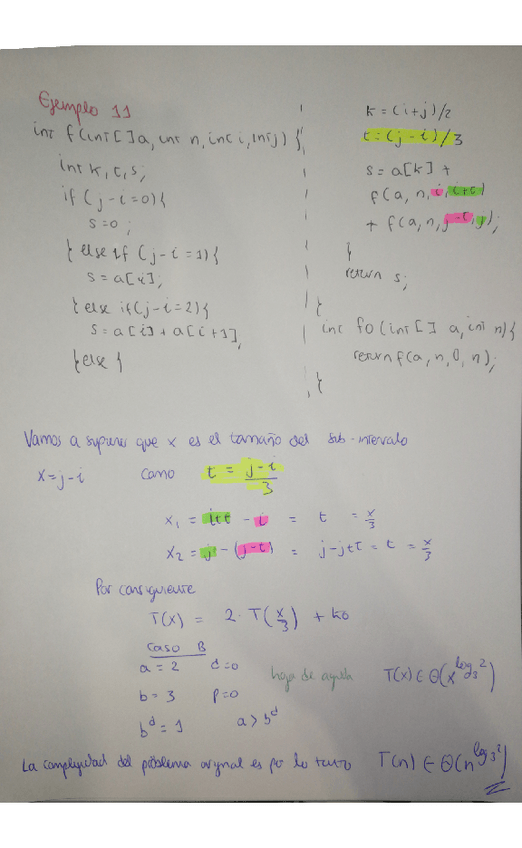 Ejemplo 11
int f(int[]a, int n, int i, int j) {
int k, t, s;
if (j-i=0){
s=0;
} else if (j-i=1){
s=a[i];
} else if(j-i=2){
s=a[i]+a[i+1],
} else {
k = (i+j)/2
t = (j-i)/3
s=a[k] +
f(a, n, i, i+t)
+ f(a, n, j-t, j);
}
return s;
}
int f0(int[] a, int n){
return f(a, n, 0, n);
}
Vamos a suponer que x es el tamaño del sub-intervalo
x=j-i como t = (j-i)/3
x₁ = i+t - i = t = x/3
x₂ = j - (j-t) = j-j+t = t = x/3
Por consiguiente
T(x) = 2·T(x/3) + k0
Caso B
a=2 d=0
b=3 p=0
hoja de ayuda T(x) ∈ Θ(x^log₃2)
b^d=1 a>b^d
La complejidad del problema original es por lo tanto T(n) ∈ Θ(n^log₃2)